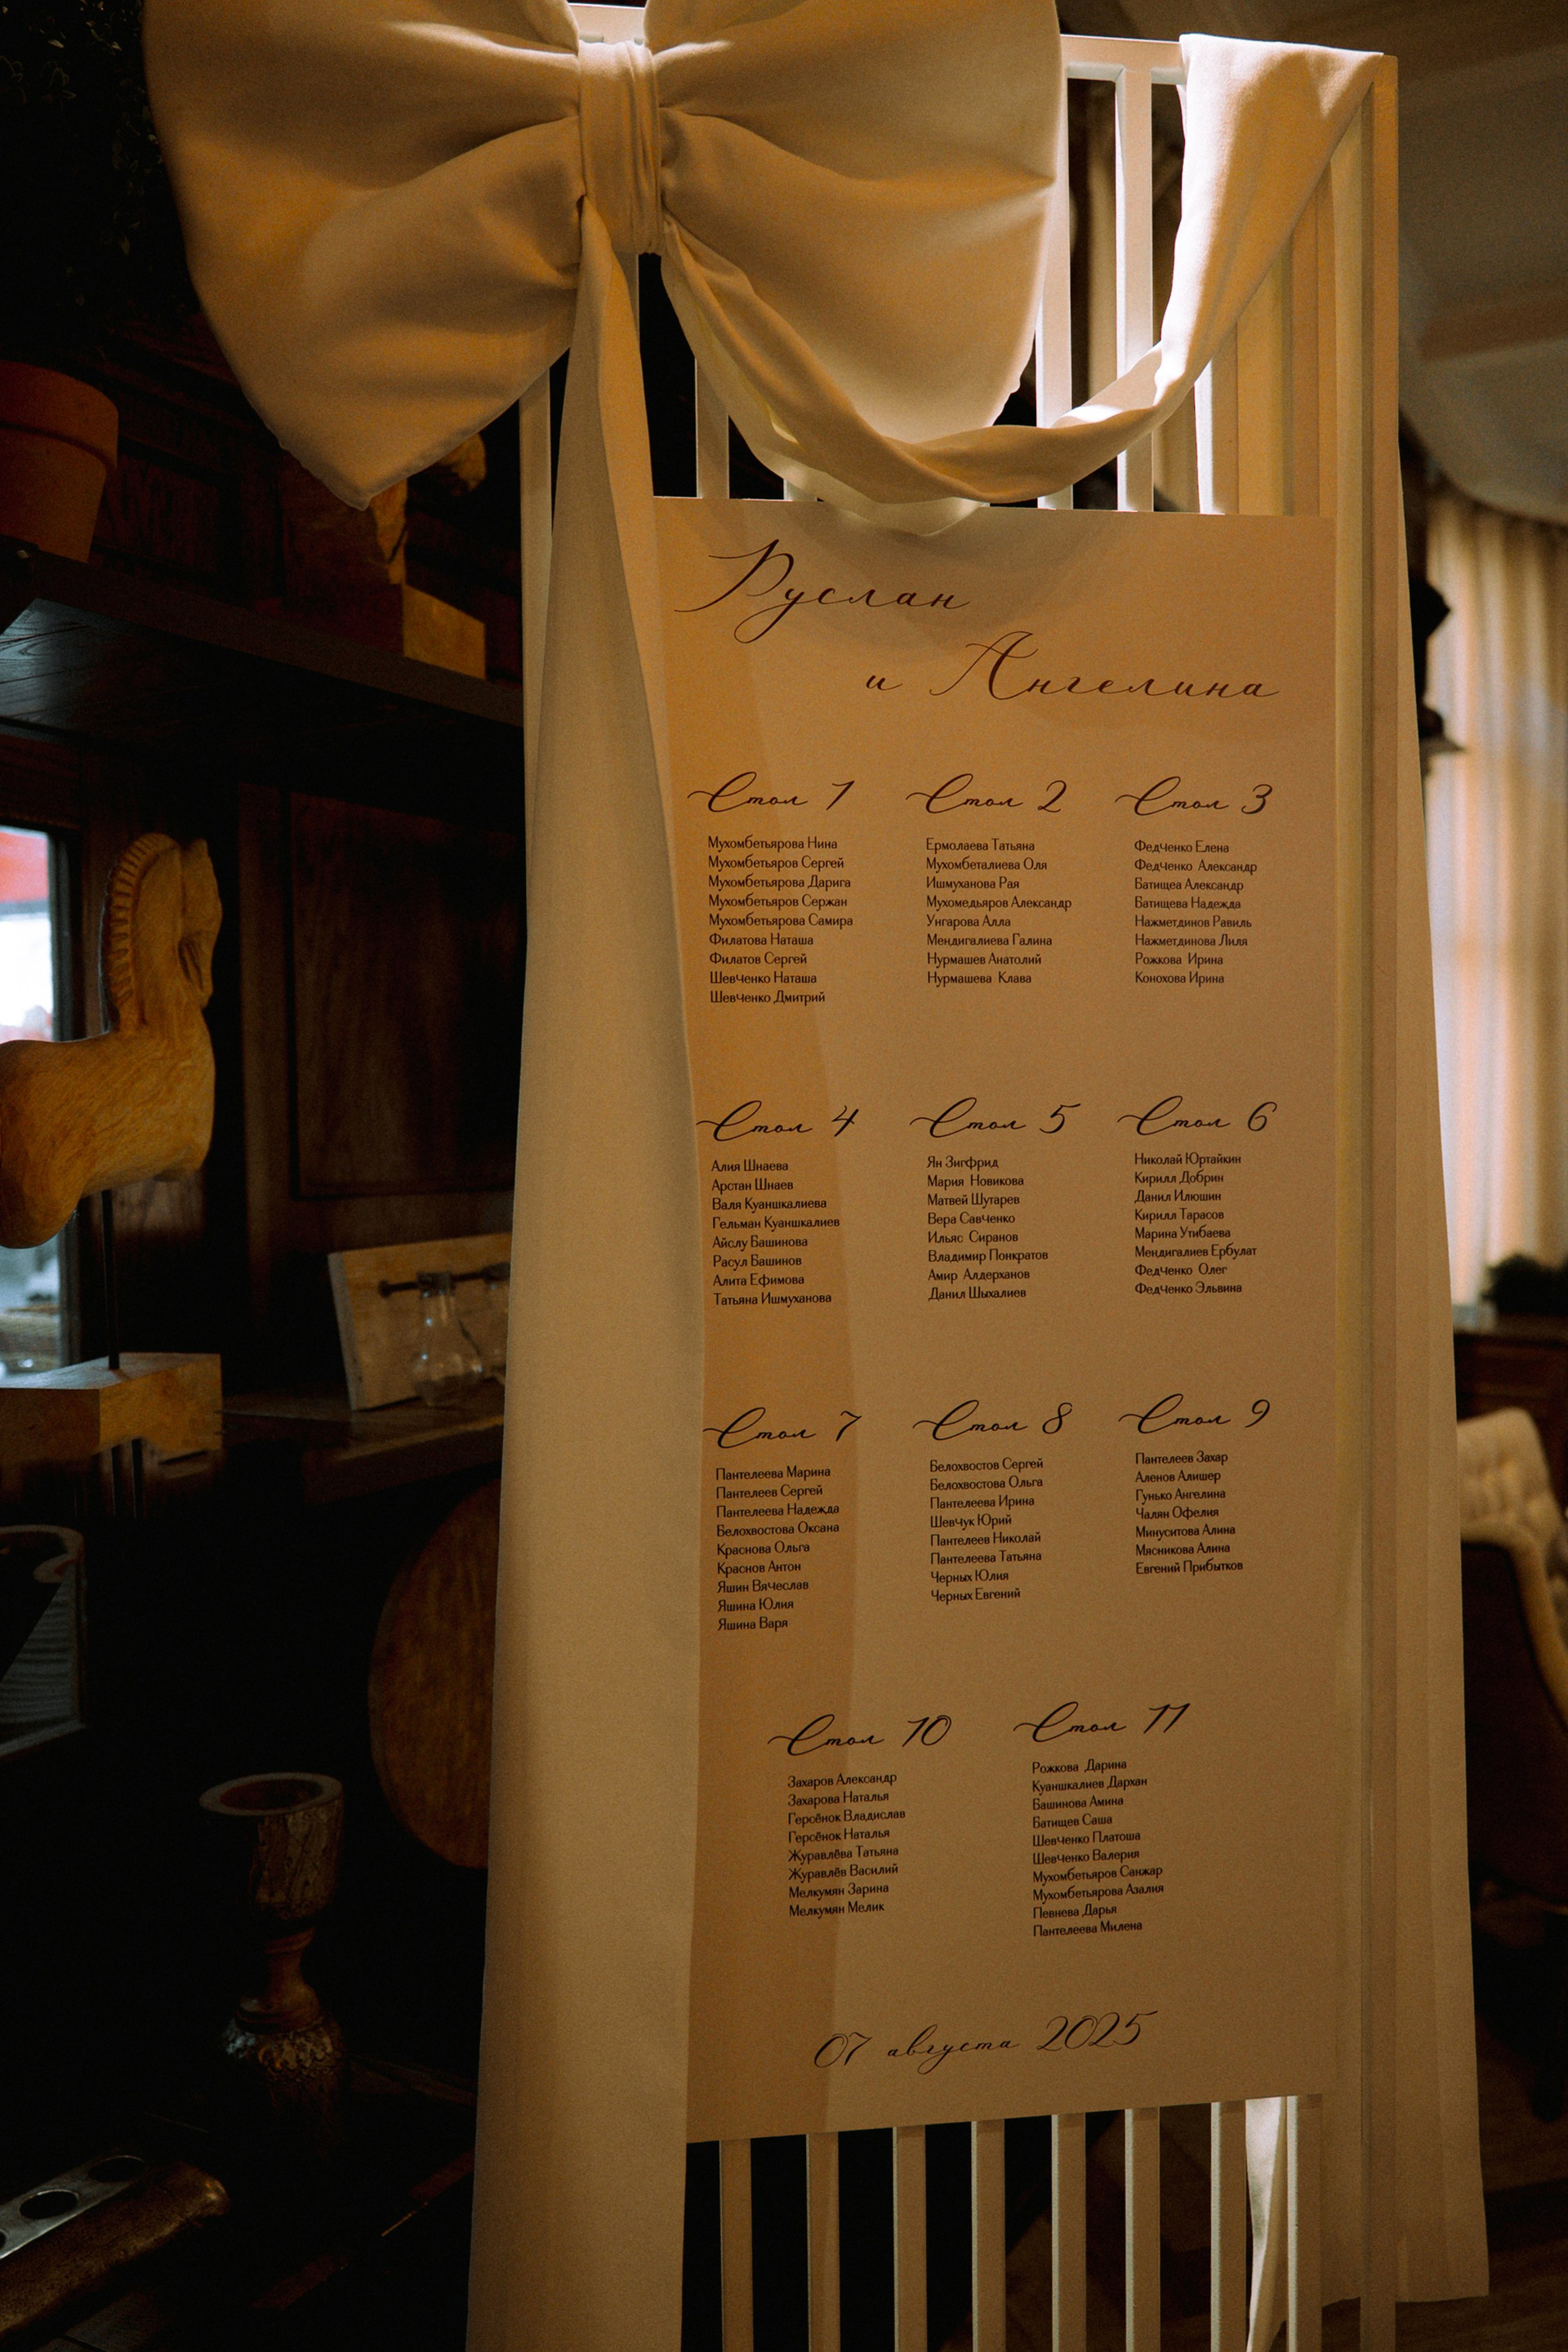 Руслан
и Ангелина
Стол 1
Мухомбетьярова Нина
Мухомбетьяров Сергей
Мухомбетьярова Дарига
Мухомбетьяров Сержан
Мухомбетьярова Самира
Филатова Наташа
Филатов Сергей
Шевченко Наташа
Шевченко Дмитрий
Стол 2
Ермолаева Татьяна
Мухомбеталиева Оля
Ишмуханова Рая
Мухомедьяров Александр
Унгарова Алла
Мендигалиева Галина
Нурмашев Анатолий
Нурмашева Клава
Стол 3
Федченко Елена
Федченко Александр
Батищеа Александр
Батищева Надежда
Нажметдинов Равиль
Нажметдинова Лиля
Рожкова Ирина
Конохова Ирина
Стол 4
Алия Шнаева
Арстан Шнаев
Валя Куаншкалиева
Гельман Куаншкалиев
Айслу Башинова
Расул Башинов
Алита Ефимова
Татьяна Ишмуханова
Стол 5
Ян Зигфрид
Мария Новикова
Матвей Шутарев
Вера Савченко
Ильяс Сиранов
Владимир Понкратов
Амир Алдерханов
Данил Шыхалиев
Стол 6
Николай Юртайкин
Кирилл Добрин
Данил Илюшин
Кирилл Тарасов
Марина Утибаева
Мендигалиев Ербулат
Федченко Олег
Федченко Эльвина
Стол 7
Пантелеева Марина
Пантелеев Сергей
Пантелеева Надежда
Белохвостова Оксана
Краснова Ольга
Краснов Антон
Яшин Вячеслав
Яшина Юлия
Яшина Варя
Стол 8
Белохвостов Сергей
Белохвостова Ольга
Пантелеева Ирина
Шевчук Юрий
Пантелеев Николай
Пантелеева Татьяна
Черных Юлия
Черных Евгений
Стол 9
Пантелеев Захар
Аленов Алишер
Гунько Ангелина
Чалян Офелия
Минуситова Алина
Мясникова Алина
Евгений Прибытков
Стол 10
Захаров Александр
Захарова Наталья
Герсёнок Владислав
Герсёнок Наталья
Журавлёва Татьяна
Журавлёв Василий
Мелкумян Зарина
Мелкумян Мелик
Стол 11
Рожкова Дарина
Куаншкалиев Дархан
Башинова Амина
Батищев Саша
Шевченко Платоша
Шевченко Валерия
Мухомбетьяров Санжар
Мухомбетьярова Азалия
Певнева Дарья
Пантелеева Милена
07 августа 2025